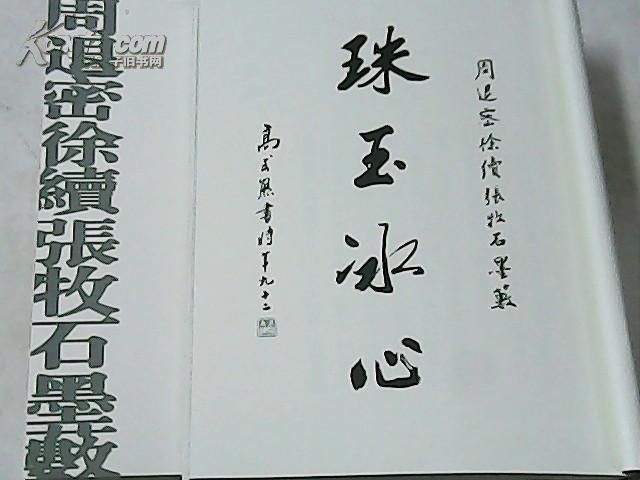 周退密徐續張牧石墨藪
珠玉冰心
高式熊書時年九十二
周退密徐續張牧石墨藪
.com
子旧书网